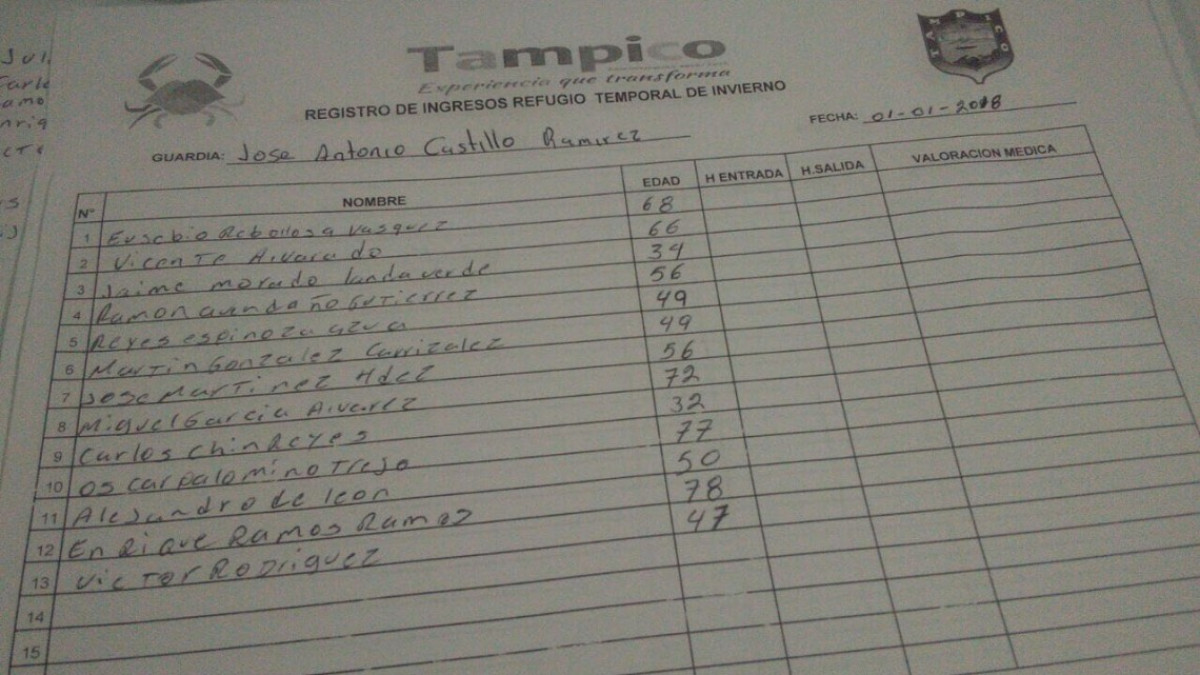 Tampico
Experiencia que transforma
REGISTRO DE INGRESOS REFUGIO TEMPORAL DE INVIERNO
TAMPICO
GUARDIA: Jose Antonio Castillo Ramirez
FECHA: 01-01-2018
N° NOMBRE EDAD H ENTRADA H.SALIDA VALORACION MEDICA
1 Eusebio Rebollosa Vasquez 68
2 Vicente Alvarado 66
3 Jaime morado landaverde 34
4 Ramon avendaño Gutierrez 56
5 Reyes espinoza azua 49
6 Martin Gonzalez Carrizalez 49
7 Jose Martinez Hdez 56
8 Miguel Garcia Alvarez 72
9 Carlos Chin Reyes 32
10 Oscar palomino Trejo 77
11 Alejandro de leon 50
12 Enrique Ramos Ramoz 78
13 Victor Rodriguez 47
14
15